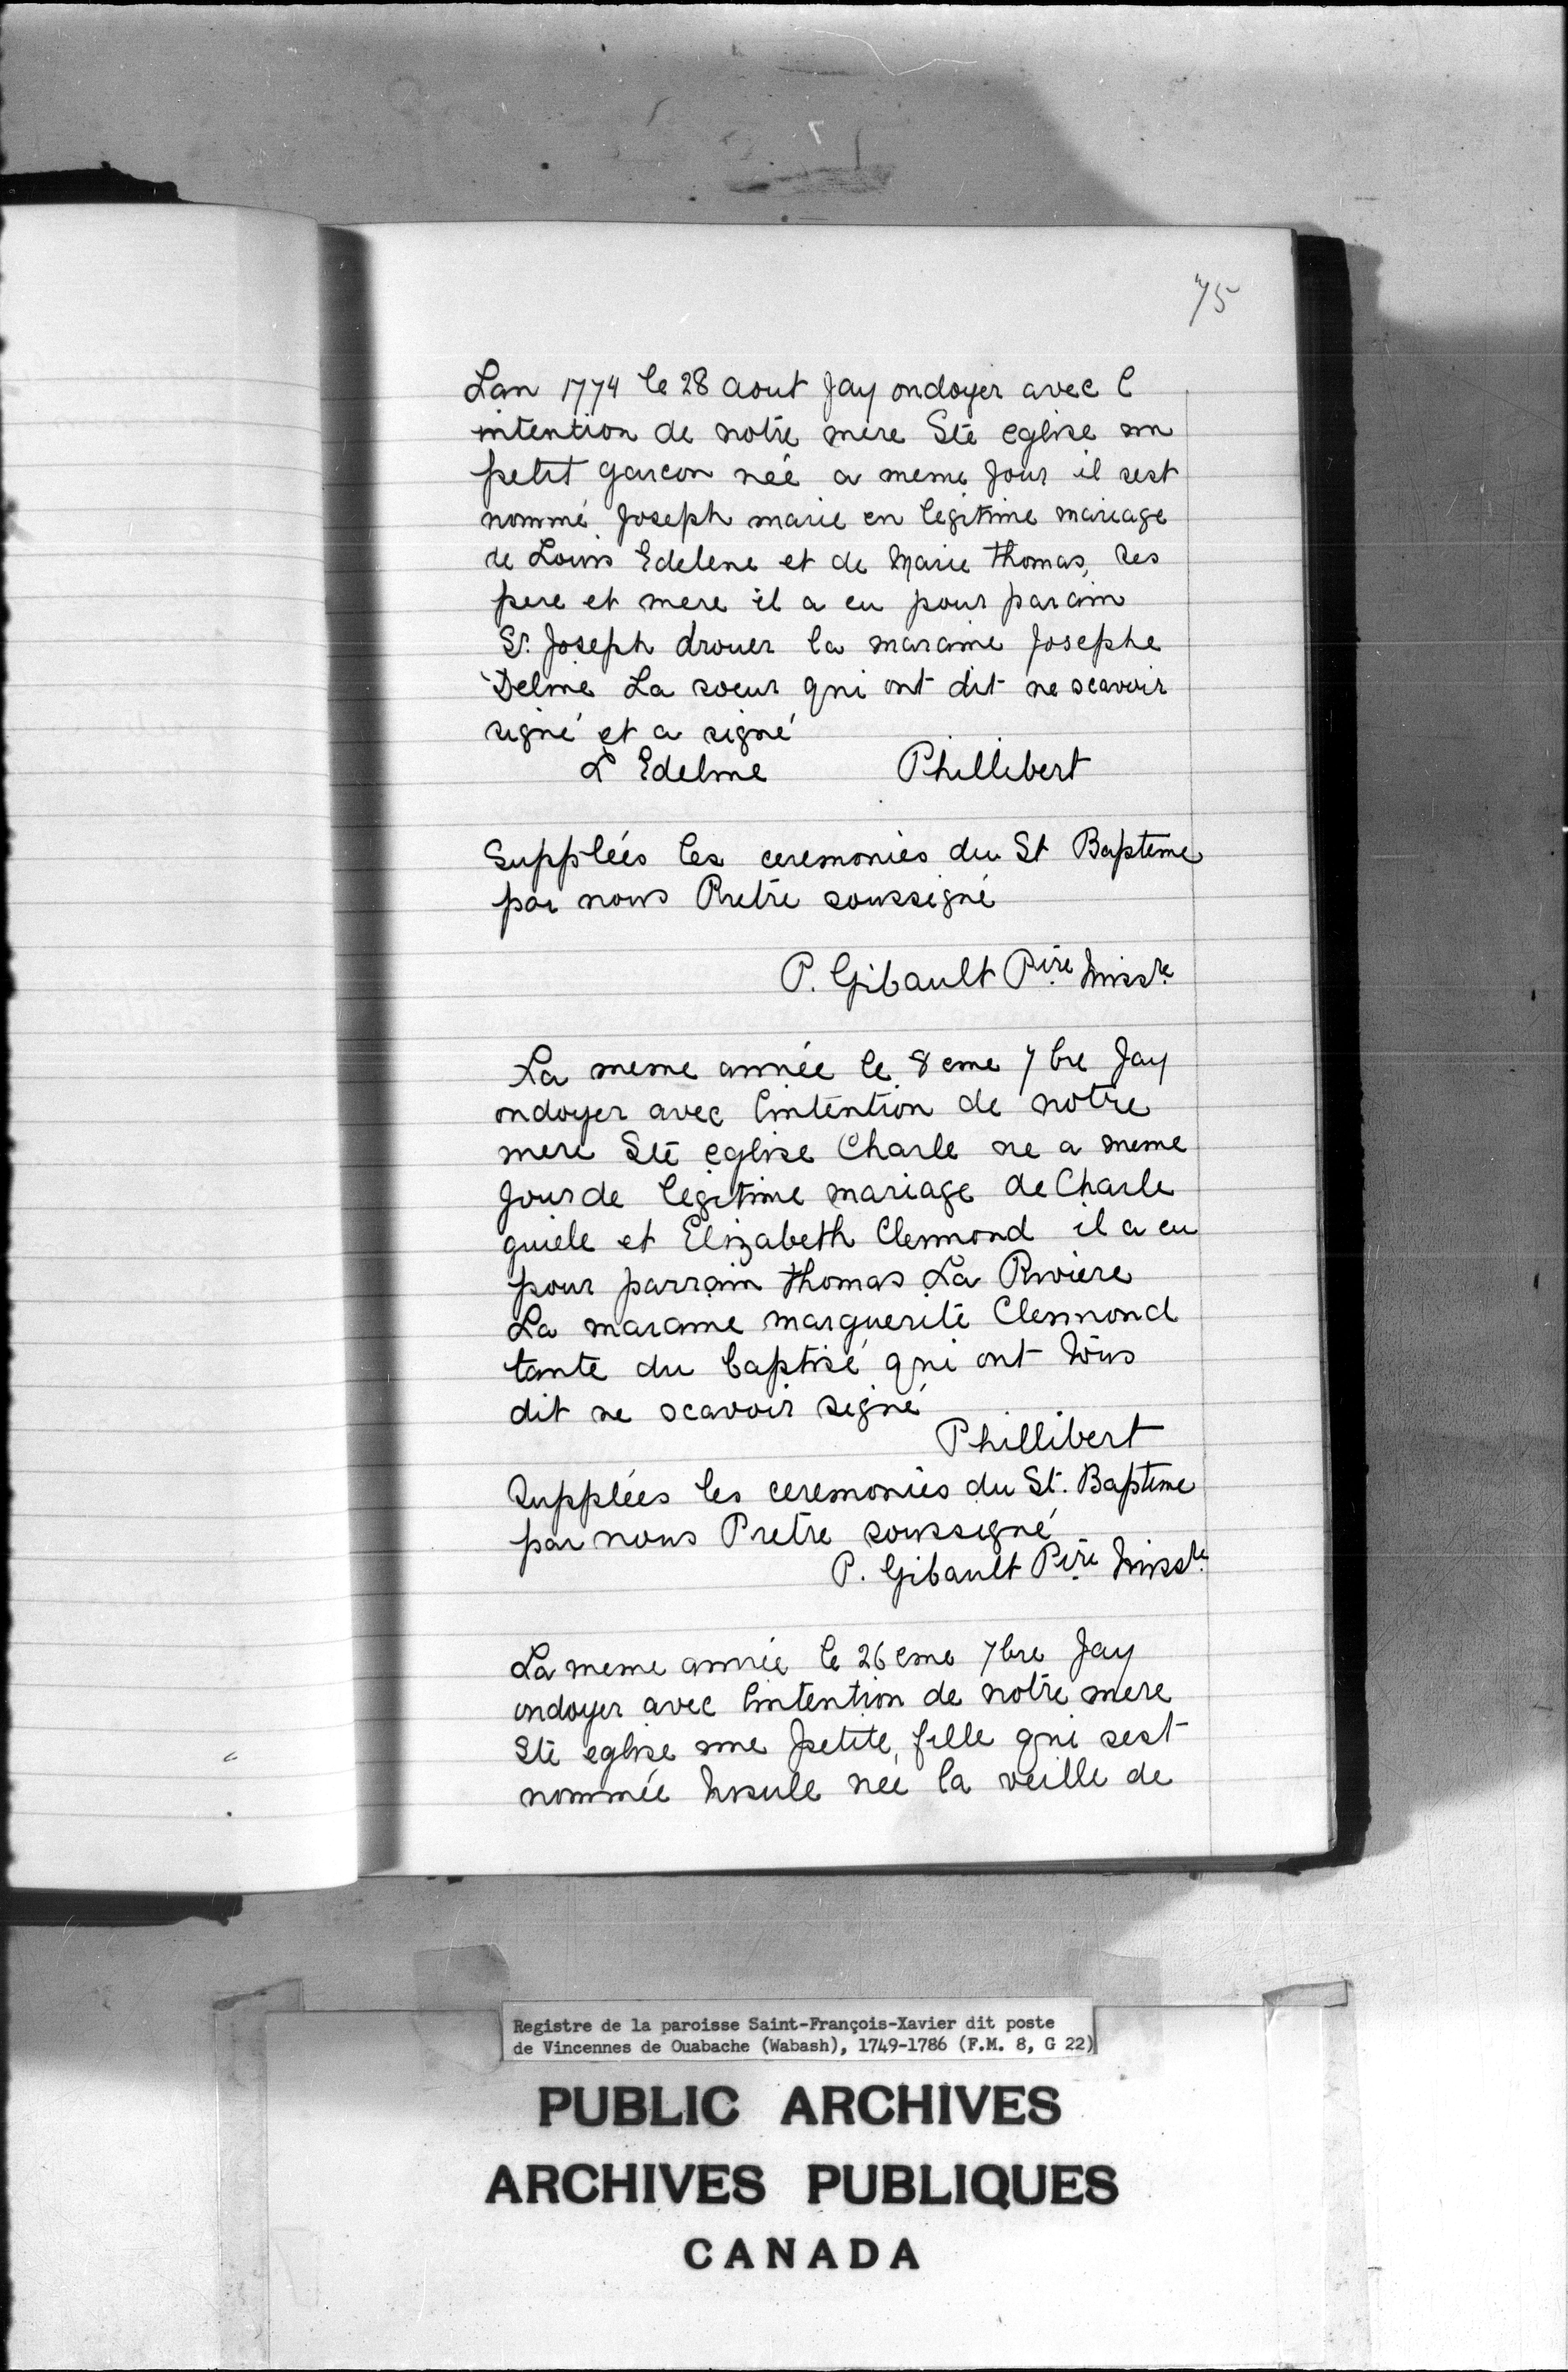 75
Lan 1774 le 28 aout Jay ondoyer avec l
intention de notre mere Ste eglise un
petit garcon née a meme Jour il sest
nommé Joseph marie en legitime mariage
de Louis Edelene et de Marie thomas, ses
pere et mere il a eu pour parain
Sr. Joseph drouer la maraine Josephe
Deline La soeur qui ont dit ne scavoir
signé et a signé
L Edeline Phillibert
Supplées les ceremonies du St Bapteme
par nous Pretre soussigné
P. Gibault Ptre Missre
La meme année le 8 eme 7 bre Jay
ondoyer avec lintention de notre
mere Ste eglise Charle ne a meme
Jour de legitime mariage de Charle
guiele et Elizabeth Clermond il a eu
pour parrain thomas La Riviere
La maraine marguerite Clermond
tante du baptisé qui ont tous
dit ne scavoir signé
Phillibert
Supplées les ceremonies du St. Bapteme
par nous Pretre soussigné
P. Gibault Ptre Missre
La meme année le 26 eme 7bre Jay
ondoyer avec lintention de notre mere
Ste eglise une petite fille qui sest
nommée Ursule née la veille de
Registre de la paroisse Saint-François-Xavier dit poste
de Vincennes de Ouabache (Wabash), 1749-1786 (F.M. 8, G 22)
PUBLIC ARCHIVES
ARCHIVES PUBLIQUES
CANADA